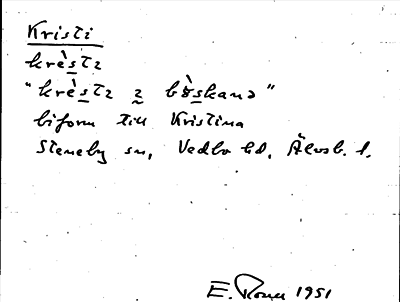 Kristi
krèstɩ
"krèstɩ ɂ bòskana"
biform till Kristina
Steneby sn, Vedbo hd, Älvsb. l.
E. 1951